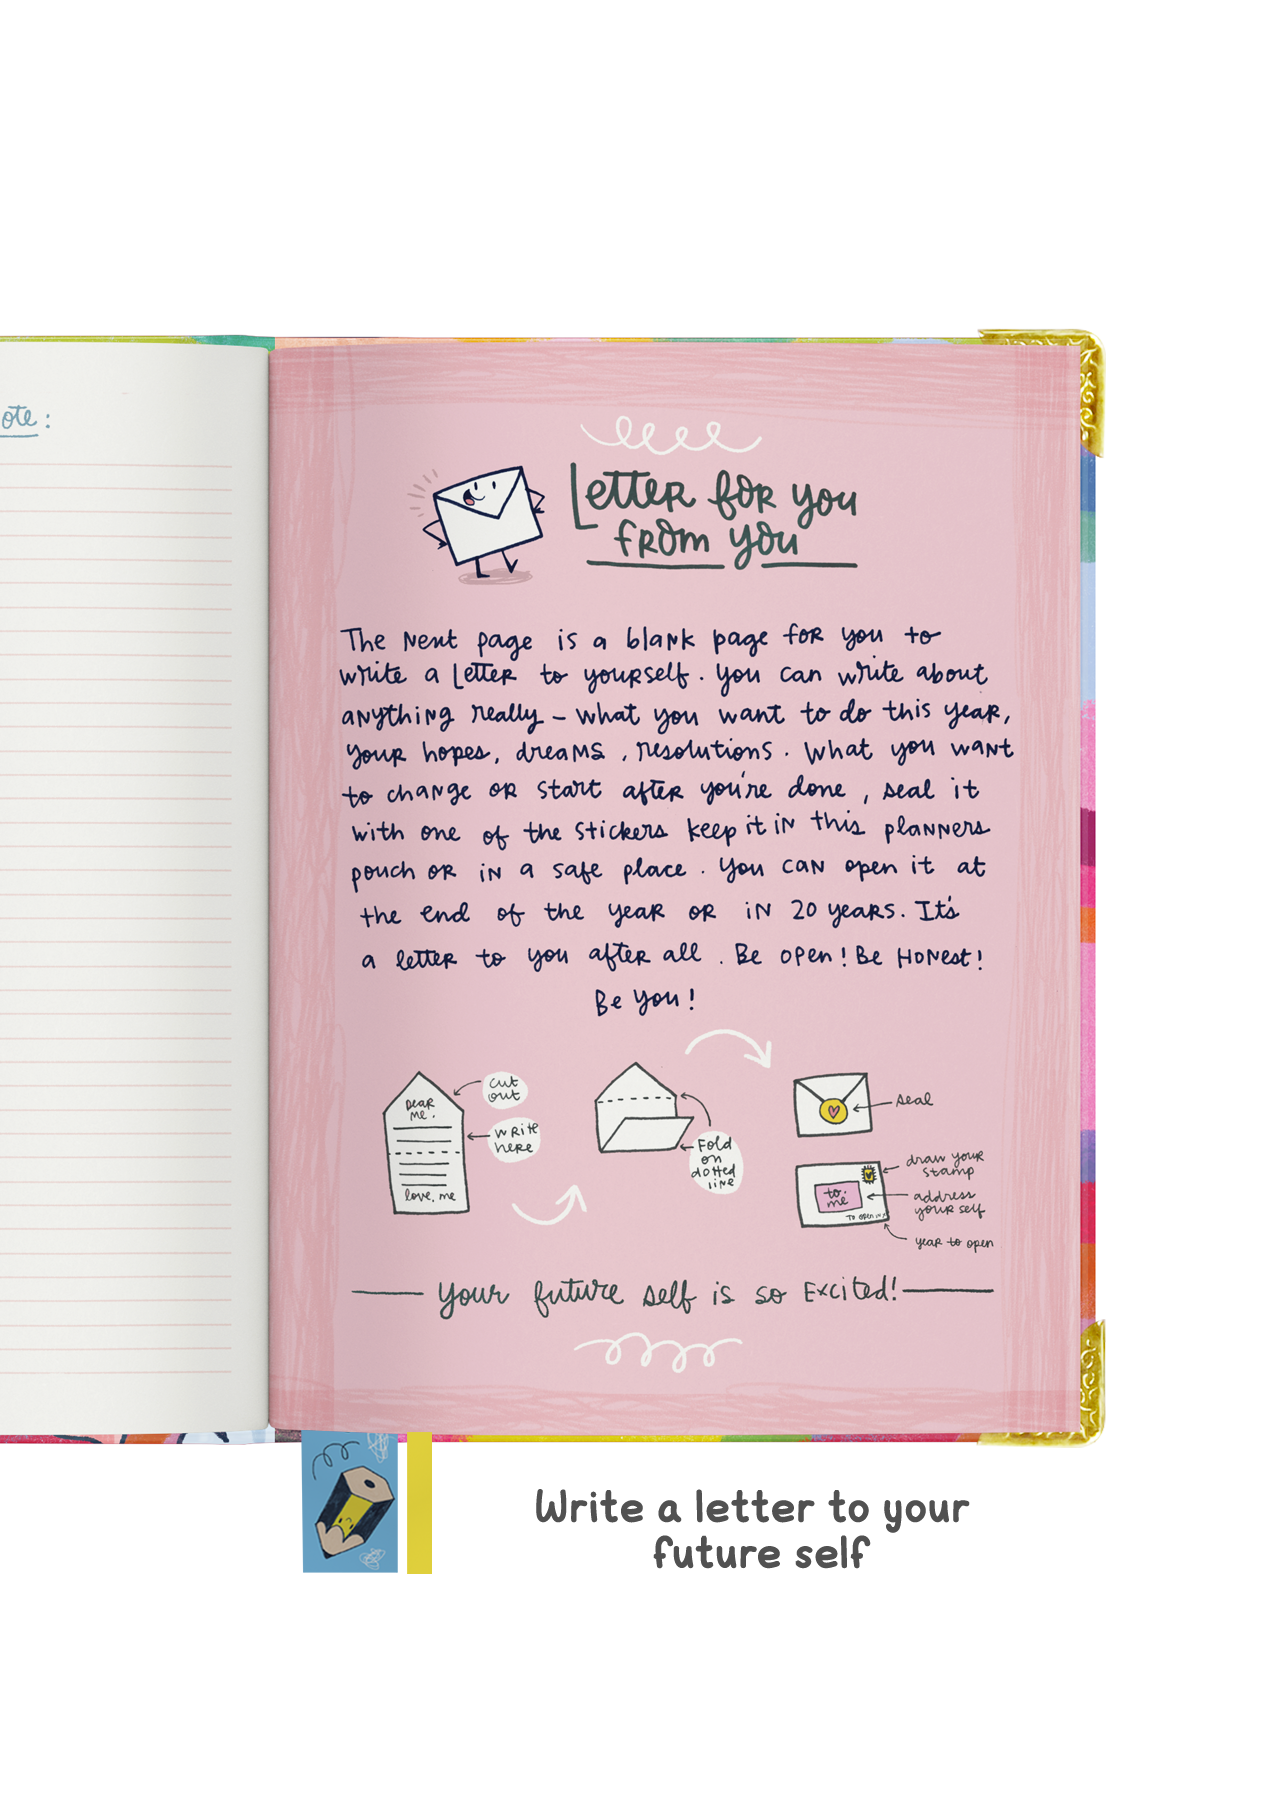 ote:
Letter for you
from you
The Next page is a blank page for you to
write a Letter to yourself. you can write about
anything really - what you want to do this year,
your hopes, dreams, resolutions. What you want
to change or start after you're done, seal it
with one of the stickers keep it in this planners
pouch or in a safe place. you can open it at
the end of the year or in 20 years. It's
a letter to you after all. Be open! Be Honest!
Be you!
Dear
me,
love, me
cut
out
write
here
Fold
on
dotted
line
seal
draw your
stamp
to:
me
To open in
address
your self
year to open
your future self is so Excited!
Write a letter to your
future self